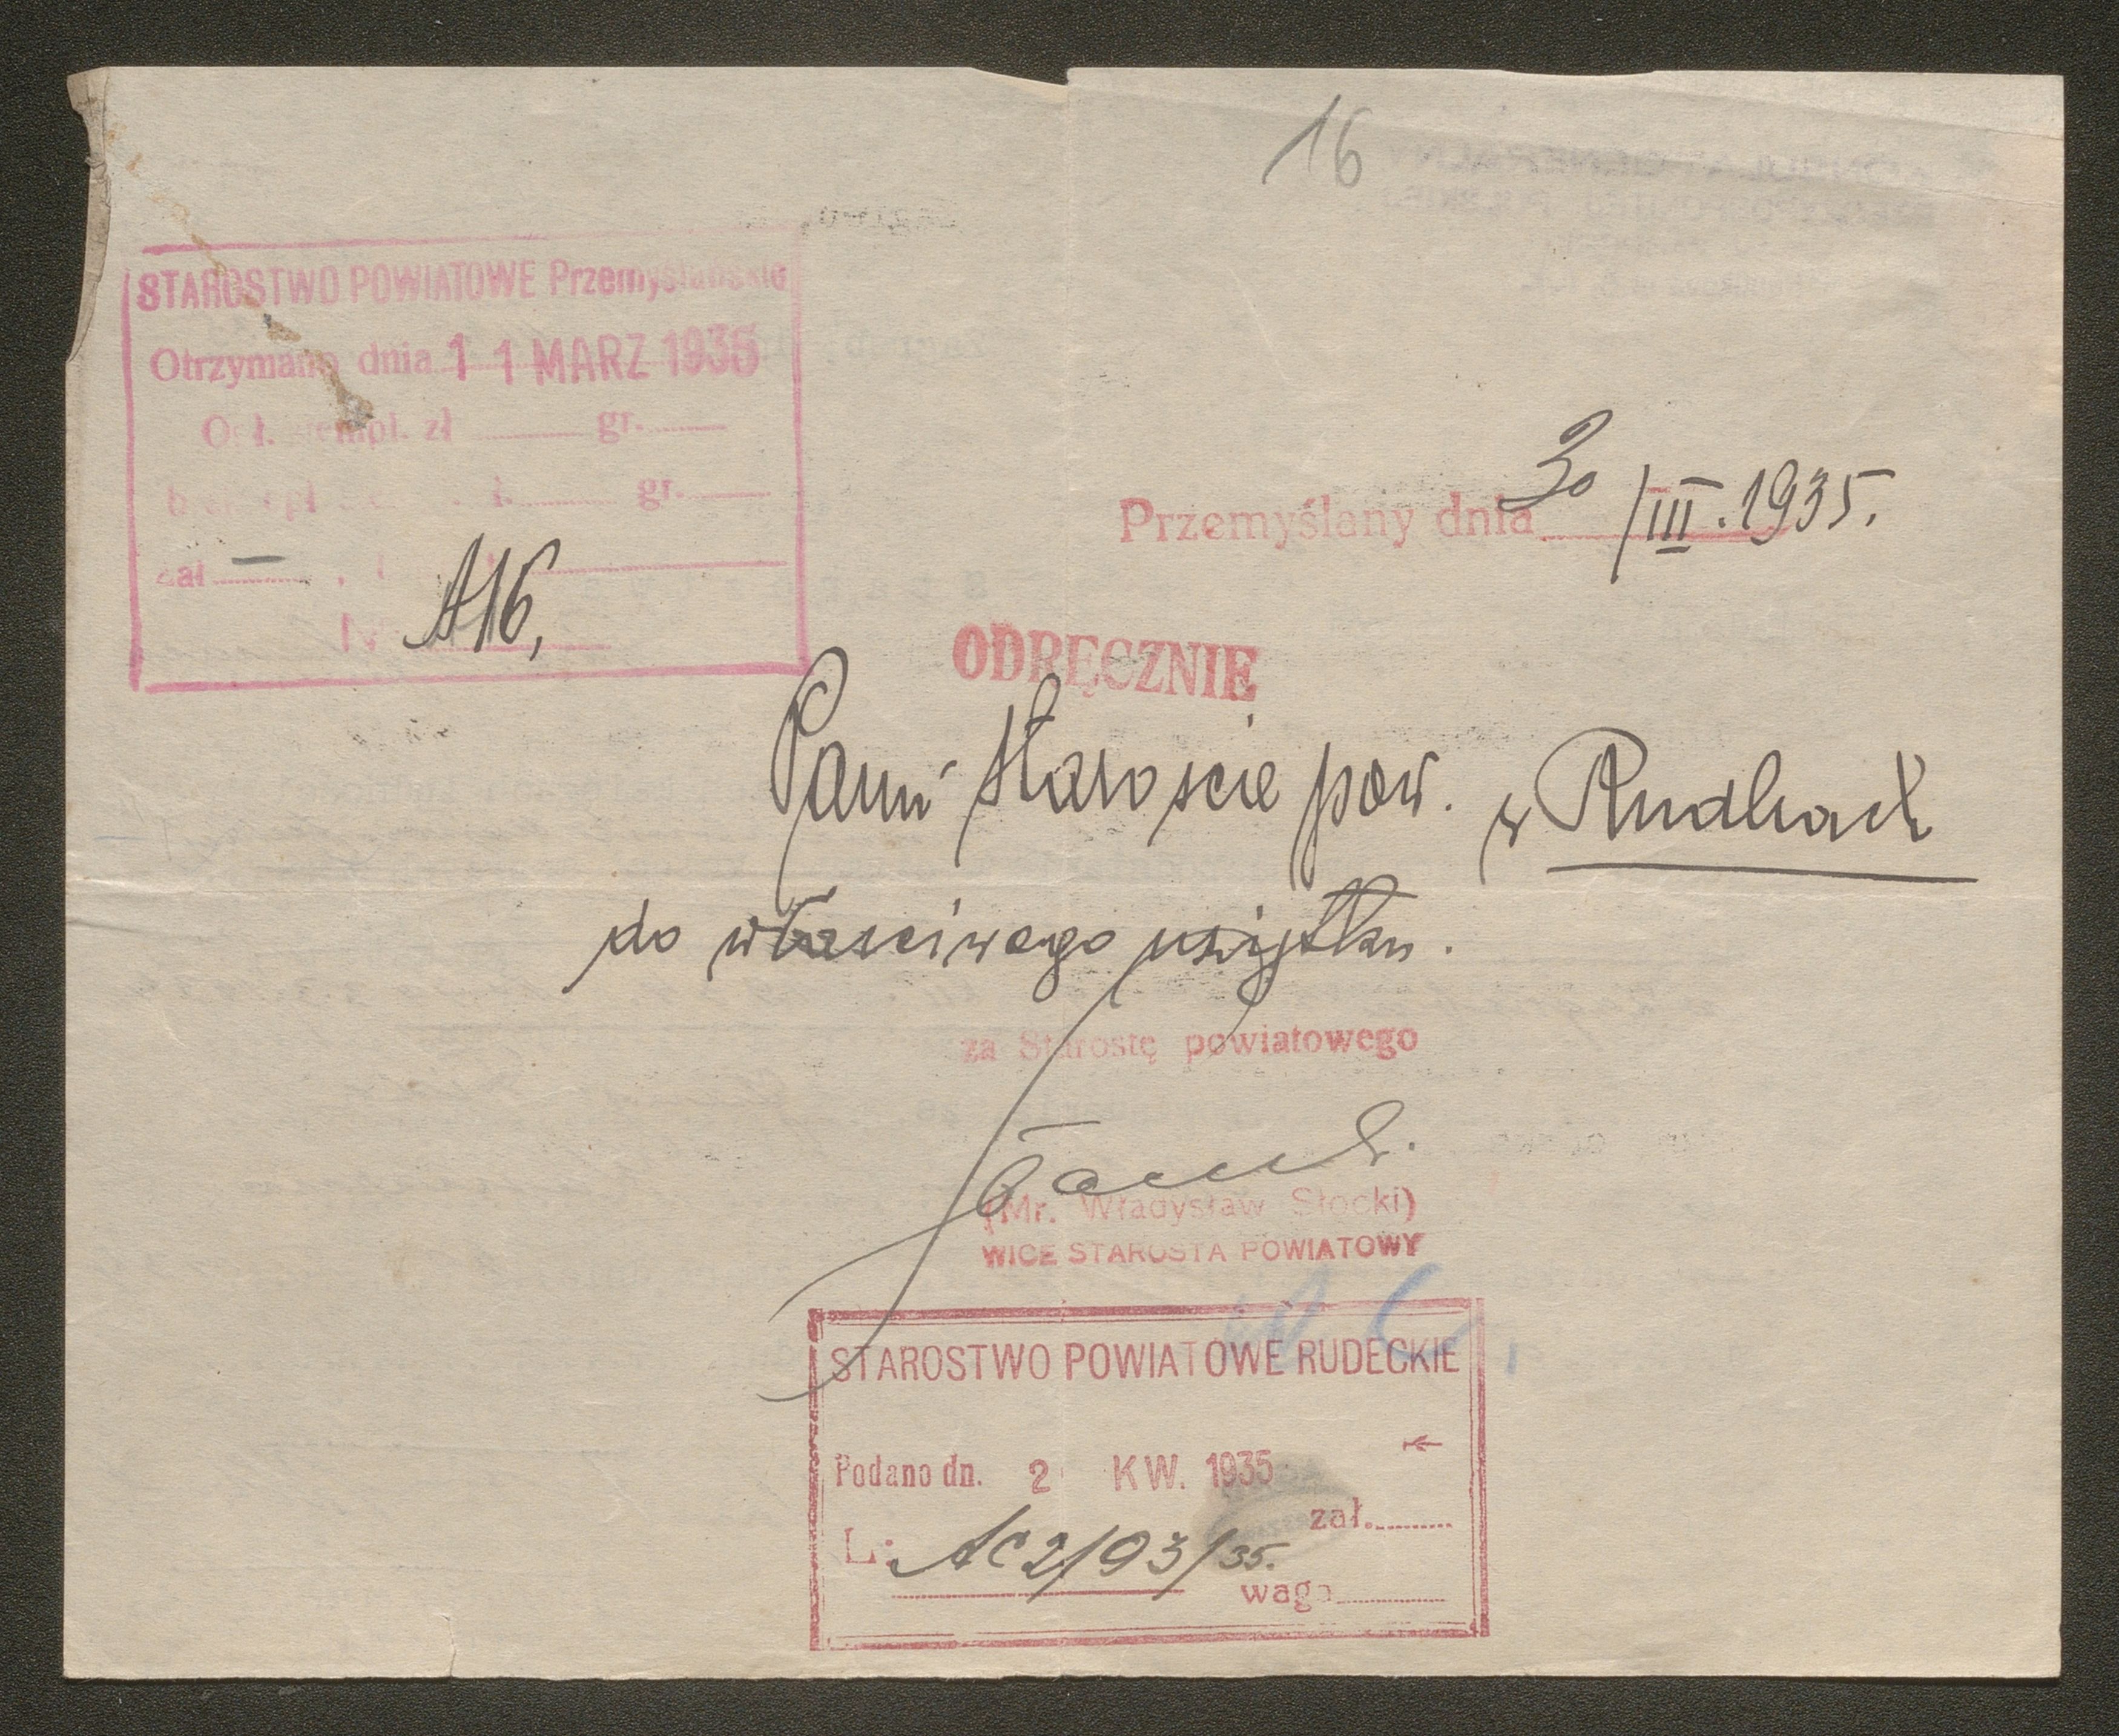 16
STAROSTWO POWIATOWE Przemyślańskie
Otrzymano dnia 11 MARZ 1935
Opł. stempl. zł gr.
gr.
zał —
A16,
Przemyślany dnia 30/III.1935.
ODRĘCZNIE
Panu Staroście pow. w Rudkach
do właściwego użytku.
za Starostę powiatowego
(Mr. Władysław Słocki)
WICE STAROSTA POWIATOWY
STAROSTWO POWIATOWE RUDECKIE
Podano dn. 2 KW. 1935
zał.
L: AC2/93/35.
waga